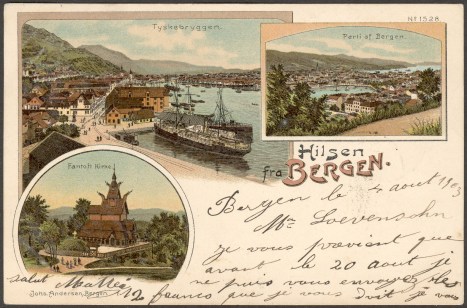 Tyskebryggen.
No 1528.
Parti af Bergen.
Hilsen
fra BERGEN.
Fantoft Kirke.
Bergen le 4 aout 1903
Mr Loevensohn
je vous prévient que
avant le 20 aout je
ne puis vous envoyer les
2 francs que je vous doit je vous
salut
Johs. Andersen, Bergen.